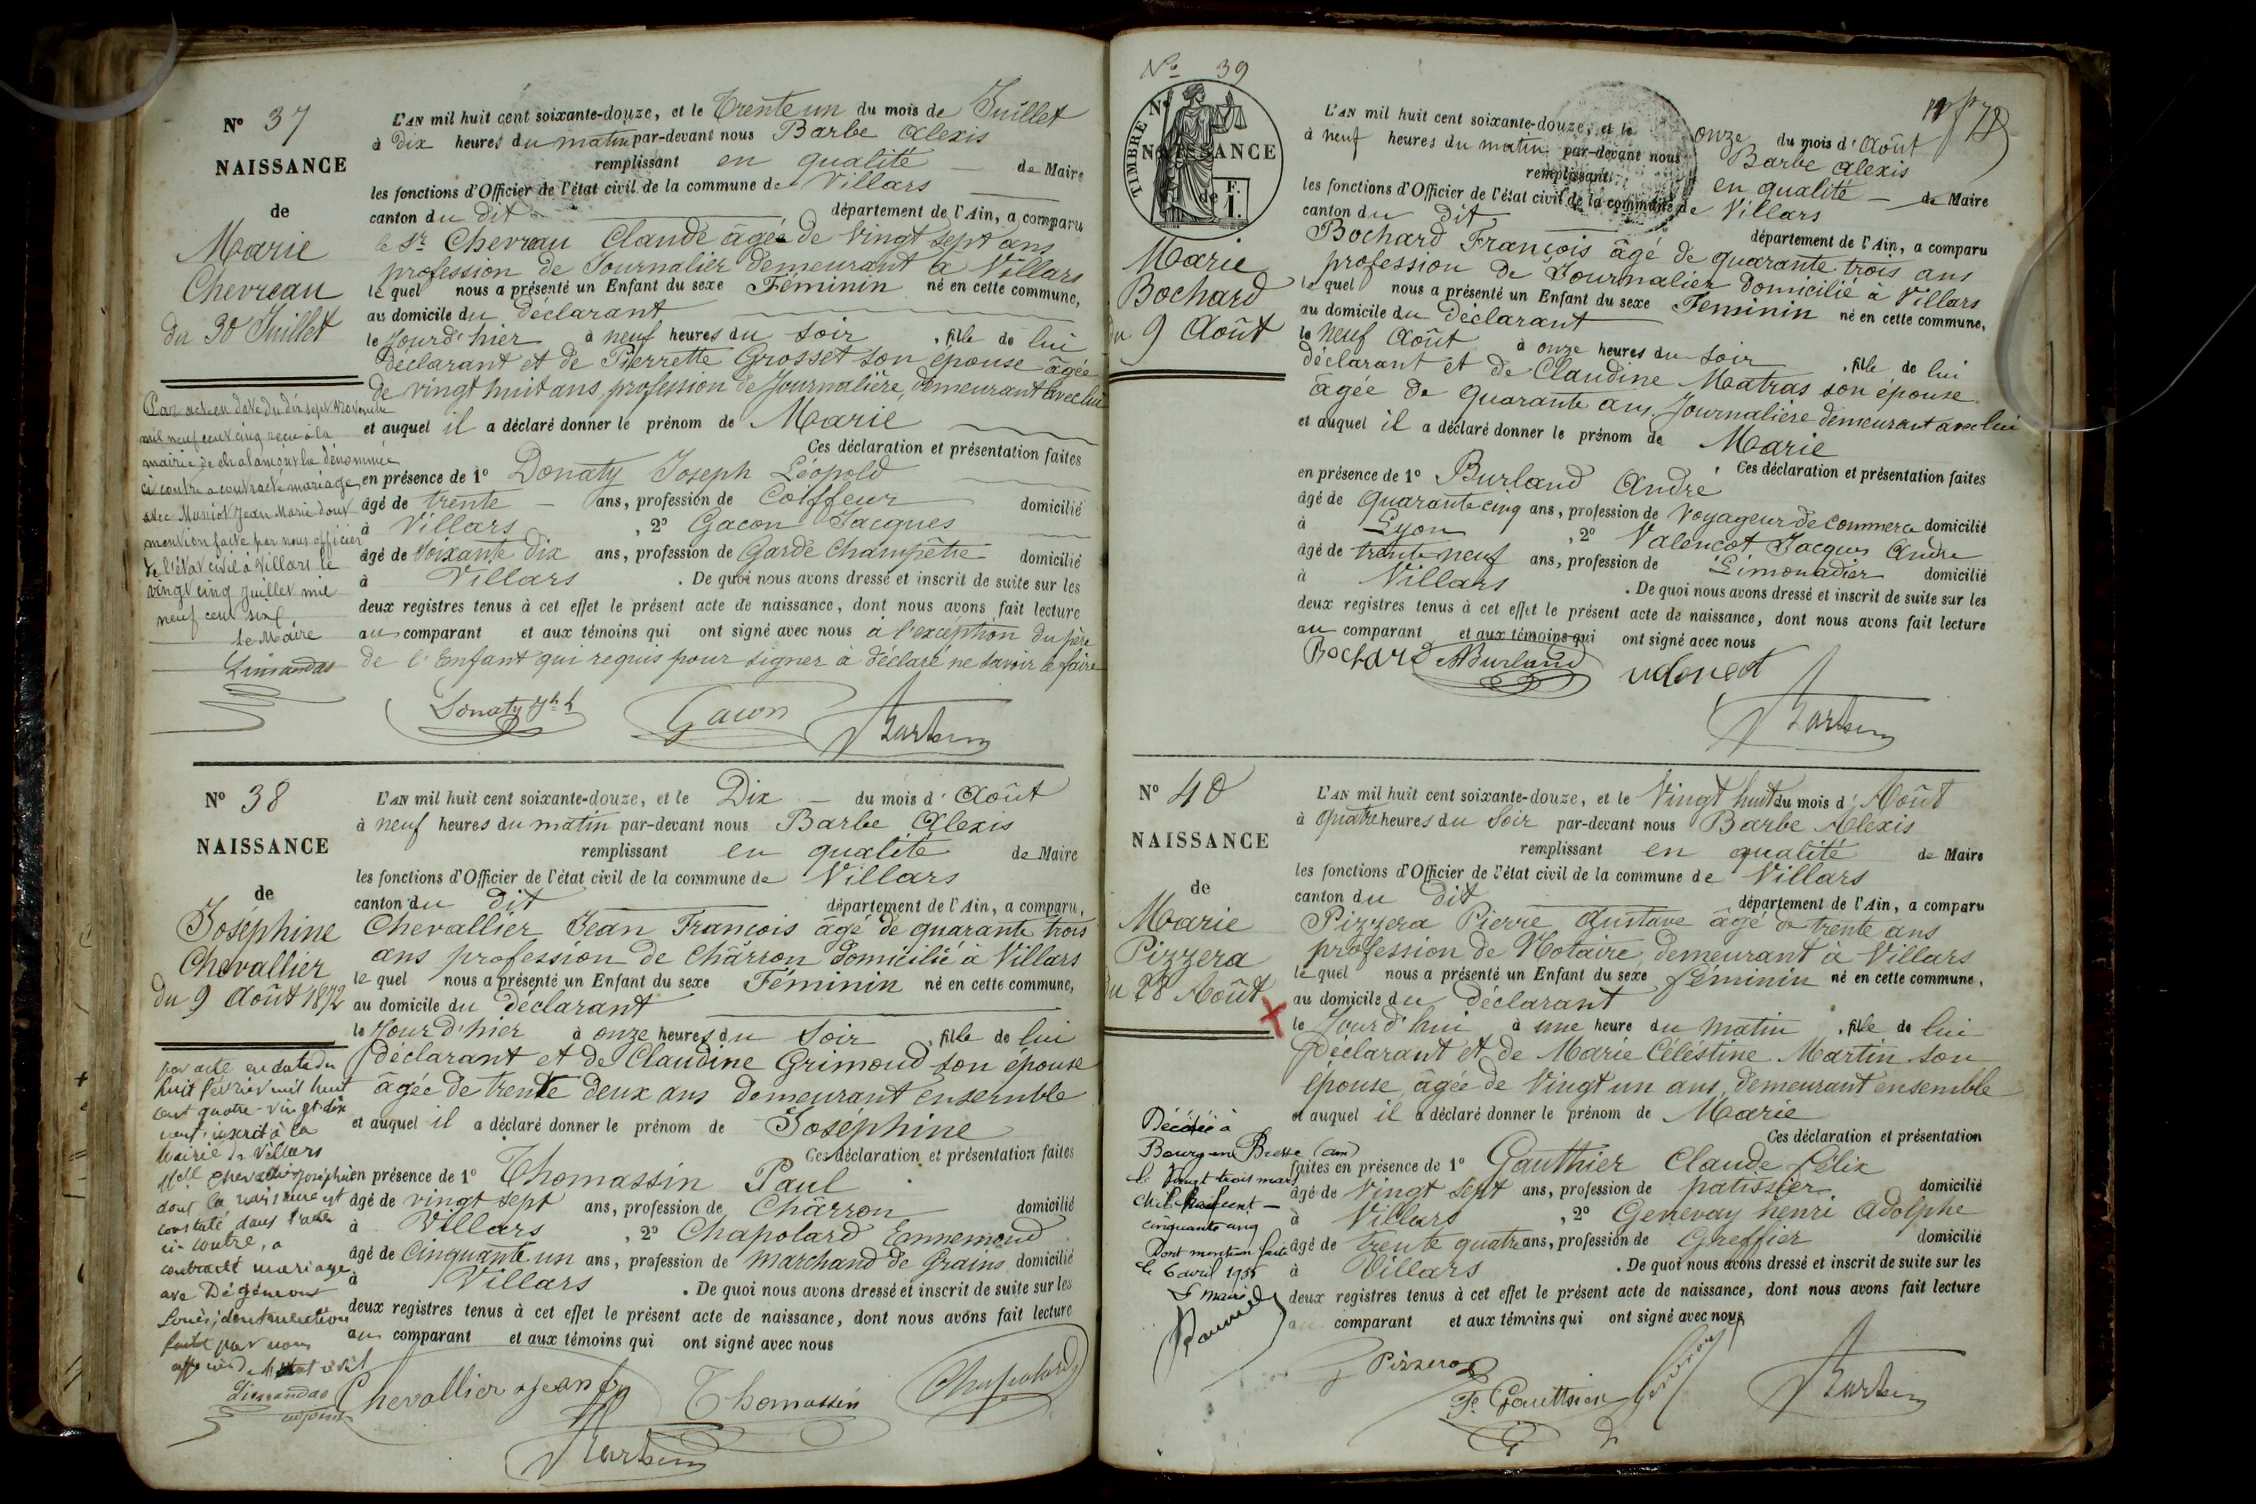 N° 37
NAISSANCE
de
Marie
Chevreau
du 30 Juillet
Par acte en date du dix sept Novembre
mil neuf cent cinq reçu à la
mairie de Chalamont la dénommée
ci contre a contracté mariage
avec Maniot Jean Marie dont
mention faite par nous officier
de l'état civil à Villars le
vingt cinq juillet mil
neuf cent six
Le Maire
Limandas
L'AN mil huit cent soixante-douze, et le Trente un du mois de Juillet
à dix heures du matin par-devant nous Barbe Alexis
remplissant en qualité de Maire
les fonctions d'Officier de l'état civil de la commune de Villars
canton du dit département de l'Ain, a comparu
le Sr Chevreau Claude âgé de vingt sept ans
profession de Journalier demeurant à Villars
le quel nous a présenté un Enfant du sexe Féminin né en cette commune,
au domicile du déclarant
le Jourd'hier à neuf heures du soir , fille de lui
déclarant et de Pierrette Grosset son épouse âgée
de vingt huit ans, profession de Journalière, demeurant avec lui
et auquel il a déclaré donner le prénom de Marie
Ces déclaration et présentation faites
en présence de 1° Donaty Joseph Léopold
âgé de trente ans, profession de Coiffeur domicilié
à Villars , 2° Gacon Jacques
âgé de Soixante dix ans, profession de Garde Champêtre domicilié
à Villars . De quoi nous avons dressé et inscrit de suite sur les
deux registres tenus à cet effet le présent acte de naissance, dont nous avons fait lecture
au comparant et aux témoins qui ont signé avec nous à l'exception du père
de l'Enfant qui requis pour signer à déclaré ne savoir le faire
Donaty Jh L
Gacon
Barbe
N° 38
NAISSANCE
de
Joséphine
Chevallier
du 9 Août 1872
par acte en date du
huit février mil huit
cent quatre-vingt-dix
neuf inscrit à la
Mairie de Villars
Melle Chevallier Joséphine
dont la naissance est
constaté dans l'acte
ci-contre, a
contracté mariage
avec Dégémont
Louis, dont mention
faite par nous
officier de l'état civil
Limandas
adjoint
L'AN mil huit cent soixante-douze, et le Dix du mois d'Août
à neuf heures du matin par-devant nous Barbe Alexis
remplissant en qualité de Maire
les fonctions d'Officier de l'état civil de la commune de Villars
canton du dit département de l'Ain, a comparu,
Chevallier Jean François âgé de quarante trois
ans profession de Chârron domicilié à Villars
le quel nous a présenté un Enfant du sexe Féminin né en cette commune,
au domicile du déclarant
le Jourd'hier à onze heures du soir , fille de lui
déclarant et de Claudine Grimoud son épouse
âgée de trente deux ans demeurant ensemble
et auquel il a déclaré donner le prénom de Joséphine
Ces déclaration et présentation faites
en présence de 1° Thomassin Paul
âgé de vingt sept ans, profession de Chârron domicilié
à Villars , 2° Chapolard Ennemond
âgé de Cinquante un ans, profession de marchand de Grains domicilié
à Villars . De quoi nous avons dressé et inscrit de suite sur les
deux registres tenus à cet effet le présent acte de naissance, dont nous avons fait lecture
au comparant et aux témoins qui ont signé avec nous
Chevallier Jean f
Thomassin
Chapolard
Barbe
N° 39
TIMBRE
NAISSANCE
de
F. 1.
Marie
Bochard
du 9 Août
L'AN mil huit cent soixante-douze, et le onze du mois d'Août
à neuf heures du matin par-devant nous Barbe Alexis
remplissant en qualité de Maire
les fonctions d'Officier de l'état civil de la commune de Villars
canton du dit département de l'Ain, a comparu
Bochard François âgé de quarante trois ans
profession de Journalier domicilié à Villars
le quel nous a présenté un Enfant du sexe Féminin né en cette commune,
au domicile du déclarant
le neuf Août à onze heures du soir , fille de lui
déclarant et de Claudine Matras son épouse
âgée de quarante ans, Journalière demeurant avec lui
et auquel il a déclaré donner le prénom de Marie
Ces déclaration et présentation faites
en présence de 1° Burland André
âgé de quarante cinq ans, profession de voyageur de commerce domicilié
à Lyon , 2° Valencot Jacques André
âgé de trente neuf ans, profession de Limonadier domicilié
à Villars . De quoi nous avons dressé et inscrit de suite sur les
deux registres tenus à cet effet le présent acte de naissance, dont nous avons fait lecture
au comparant et aux témoins qui ont signé avec nous
Bochard
ABurland
Barbe
N° 40
NAISSANCE
de
Marie
Pizzera
du 28 Août
Décédée à
Bourg en Bresse (Ain)
le vingt trois mars
mil neuf cent
cinquante cinq
Dont mention faite
le 6 avril 1955
Le Maire
L'AN mil huit cent soixante-douze, et le Vingt huit du mois d'Août
à quatre heures du soir par-devant nous Barbe Alexis
remplissant en qualité de Maire
les fonctions d'Officier de l'état civil de la commune de Villars
canton du dit département de l'Ain, a comparu
Pizzera Pierre Gustave âgé de trente ans
profession de Notaire, demeurant à Villars
le quel nous a présenté un Enfant du sexe féminin né en cette commune,
au domicile du déclarant
le Jourd'hui à une heure du matin , fille de lui
Déclarant et de Marie Céléstine Martin son
épouse, âgée de Vingt un ans, demeurant ensemble
et auquel il a déclaré donner le prénom de Marie
Ces déclaration et présentation
faites en présence de 1° Gauthier Claude félix
âgé de vingt sept ans, profession de patissier domicilié
à Villars , 2° Genevay henri Adolphe
âgé de trente quatre ans, profession de Greffier domicilié
à Villars . De quoi nous avons dressé et inscrit de suite sur les
deux registres tenus à cet effet le présent acte de naissance, dont nous avons fait lecture
au comparant et aux témoins qui ont signé avec nous
Pizzera
Fx Gauthier
Barbe